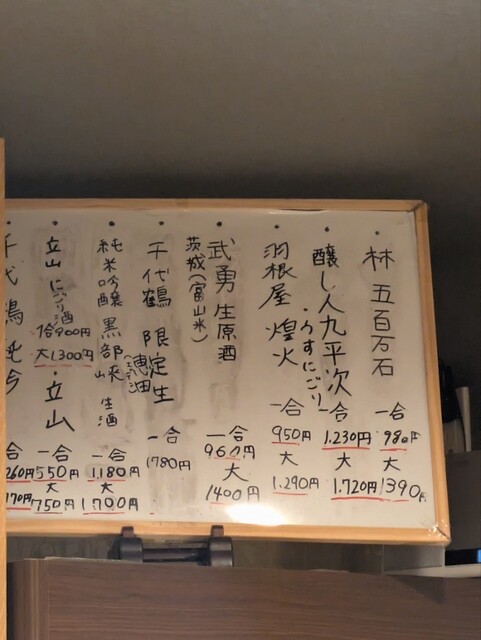 林 五百万石
一合
980円
大
1390円
醸し人九平次
うすにごり
一合
1.230円
大
1.720円
羽根屋 煌火
一合
950円
大
1.290円
武勇 生原酒
茨城(富山米)
一合
960円
大
1400円
千代鶴 限定生
穂田
一合
1780円
純米吟醸 黒部峡 生酒
一合
1.180円
大
1.700円
立山 にごり酒
1合900円
大1.300円
立山
一合
550円
大
750円
千代鶴 純吟